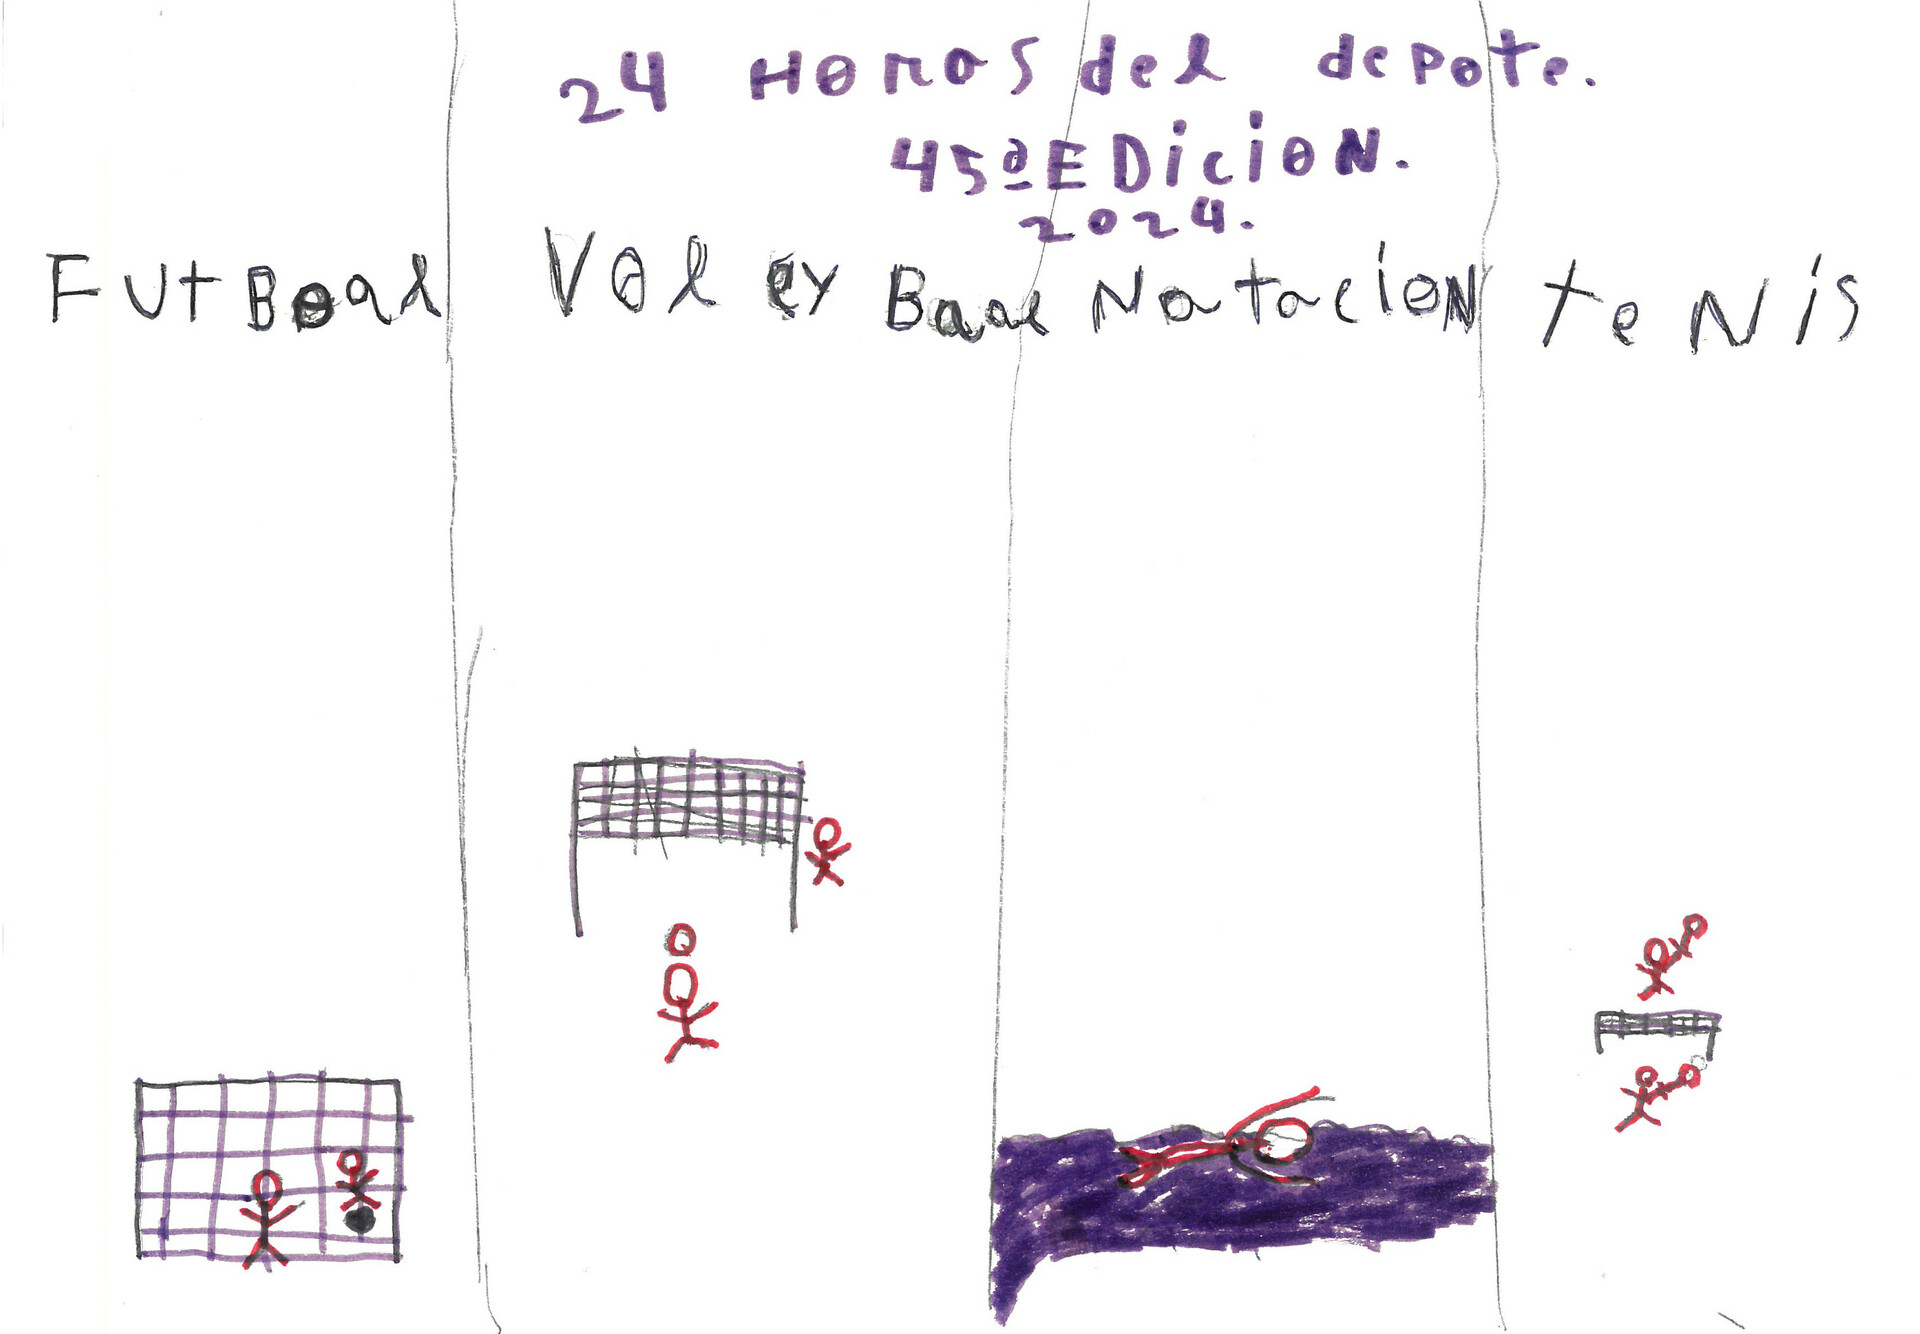 24 Horas del depote.
45ª EDicioN.
2024.
FutBoal Voley Baal Natacion teNis